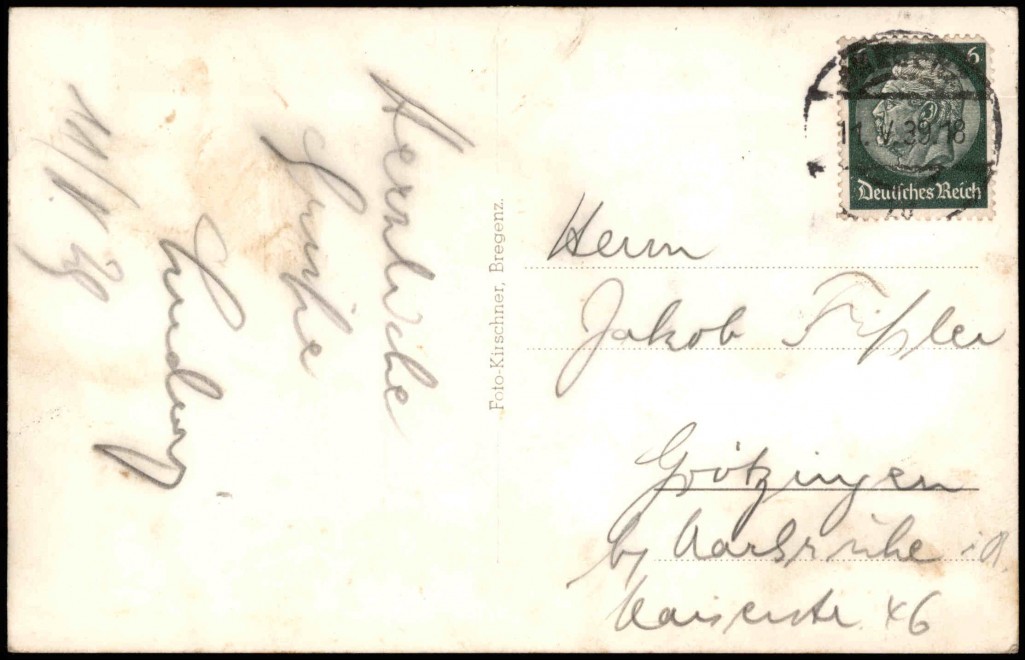 Herzliche
Grüße
Ludwig
11/V 39
Foto-Kirschner, Bregenz.
6
11.V.39.18
Deutsches Reich
Herrn
Jakob Fißler
Grötzingen
by Karlsruhe i. B.
Kaiserstr 46